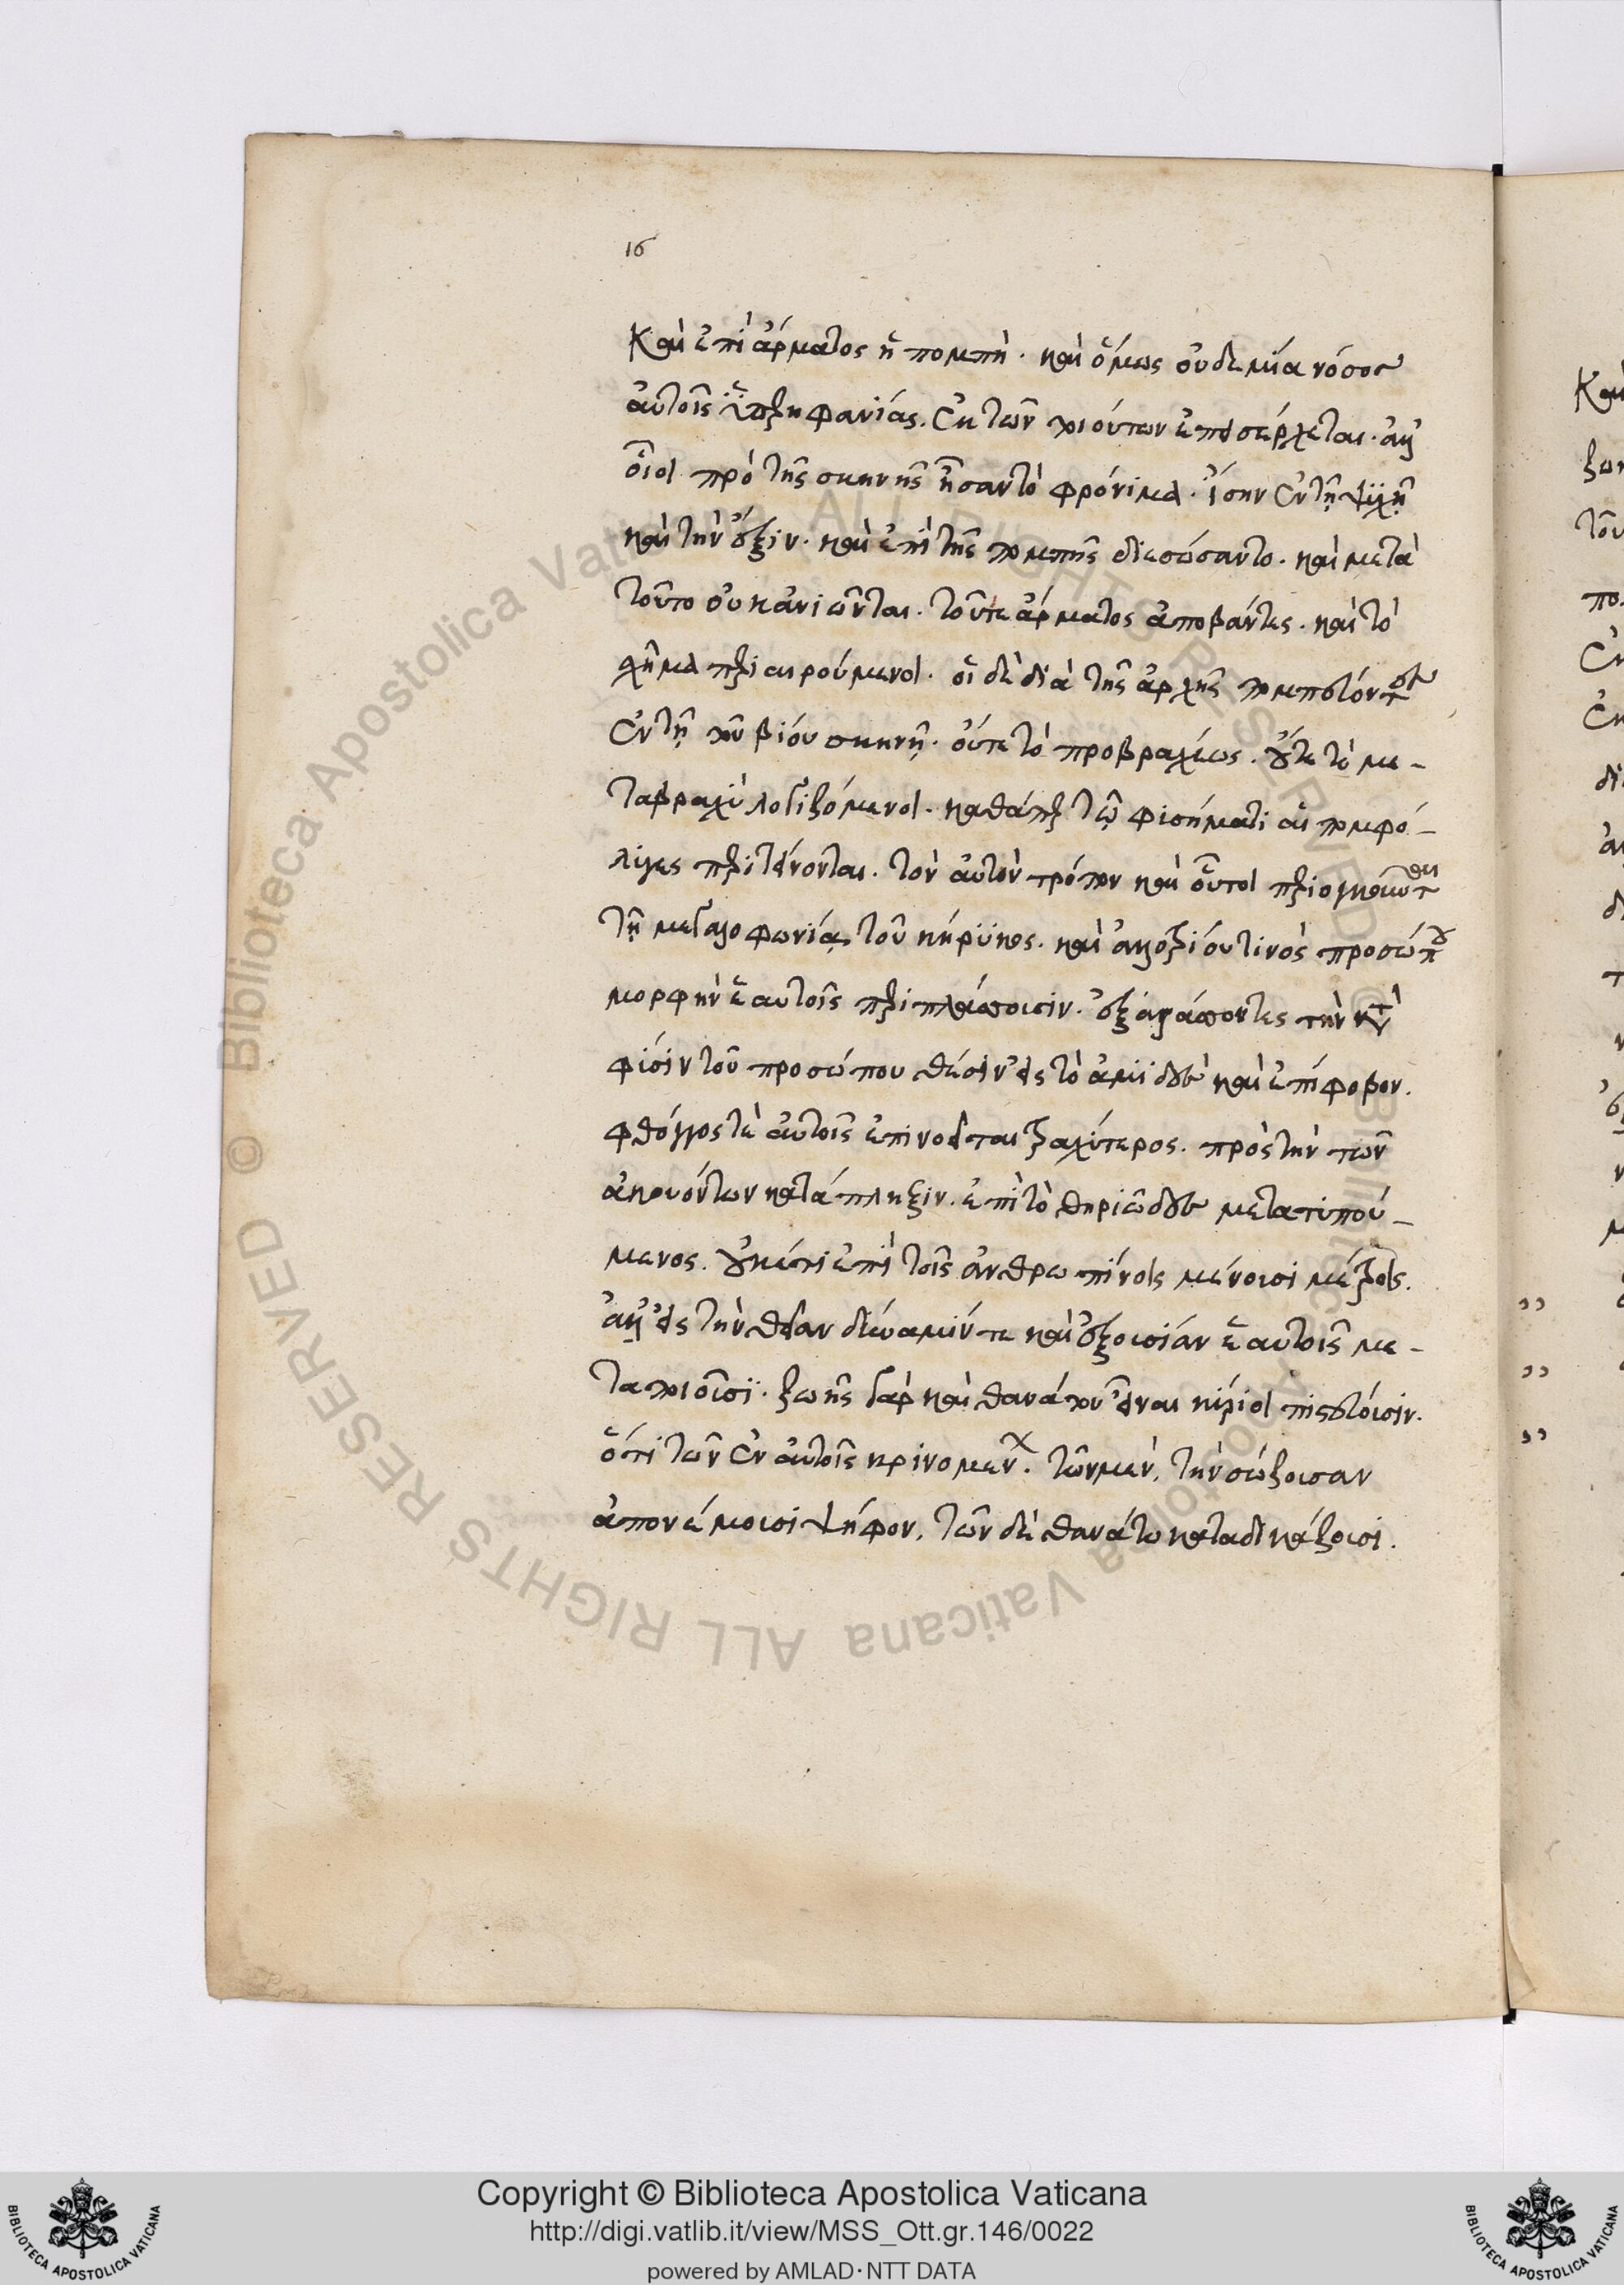 16
Καὶ ἐπὶ ἅρματος ἡ πομπὴ. καὶ ὅμως οὐδεμία νόσος
αὐτοῖς ὑπερηφανίας. ἐκ τῶν τοιούτων ἐπεισέρχεται. ἀλλ'
οἷοι πρὸ τῆς σκηνῆς ἦσαν τὸ φρόνιμα. ἴσην ἐν τῇ ψυχῇ
καὶ τὴν ἕξιν. καὶ ἐπὶ τῆς πομπῆς διεσώσαντο. καὶ μετὰ
τοῦτο οὐκ ἀνιῶνται. τοῦ τε ἅρματος ἀποβάντες. καὶ τὸ
σχῆμα περιαιρούμενοι. οἱ δὲ διὰ τῆς ἀρχῆς πομπεύοντες
ἐν τῇ τοῦ βίου σκηνῇ. οὔτε τὸ προβραχέως. οὔτε τὸ με-
ταβραχὺ λογιζόμενοι. καθάπερ τῷ φυσήματι αἱ πομφό-
λυγες περιτείνονται. τὸν αὐτὸν τρόπον καὶ οὗτοι περιογκοῦνται
τῇ μεγαλοφωνίᾳ τοῦ κήρυκος. καὶ ἀλλοτρίου τινὸς προσώπου
μορφὴν ἑαυτοῖς περιπλάττουσιν. ἐξαλλάττοντες τὴν κατὰ
φύσιν τοῦ προσώπου θέσιν εἰς τὸ ἀμειδὲς καὶ ἐπίφοβον.
φθόγγος τὲ αὐτοῖς ἐπινοεῖται τραχύτερος. πρὸς τὴν τῶν
ἀκουόντων κατάπληξιν. ἐπὶ τὸ θηριῶδες μετατυπού-
μενος. οὐκέτι ἐπὶ τοῖς ἀνθρωπίνοις μένουσι μέτροις.
ἀλλ' εἰς τὴν θείαν δύναμίν τε καὶ ἐξουσίαν ἑαυτοῖς με-
ταποιοῦσϊ. ζωῆς γὰρ καὶ θανάτου εἶναι κύριοι πιστεύουσιν.
ὅτι τῶν ἐν αὐτοῖς κρινομένων. τῶν μὲν, τὴν σώζουσαν
ἀπονέμουσι ψῆφον, τῶν δὲ θανάτω καταδικάζουσι.